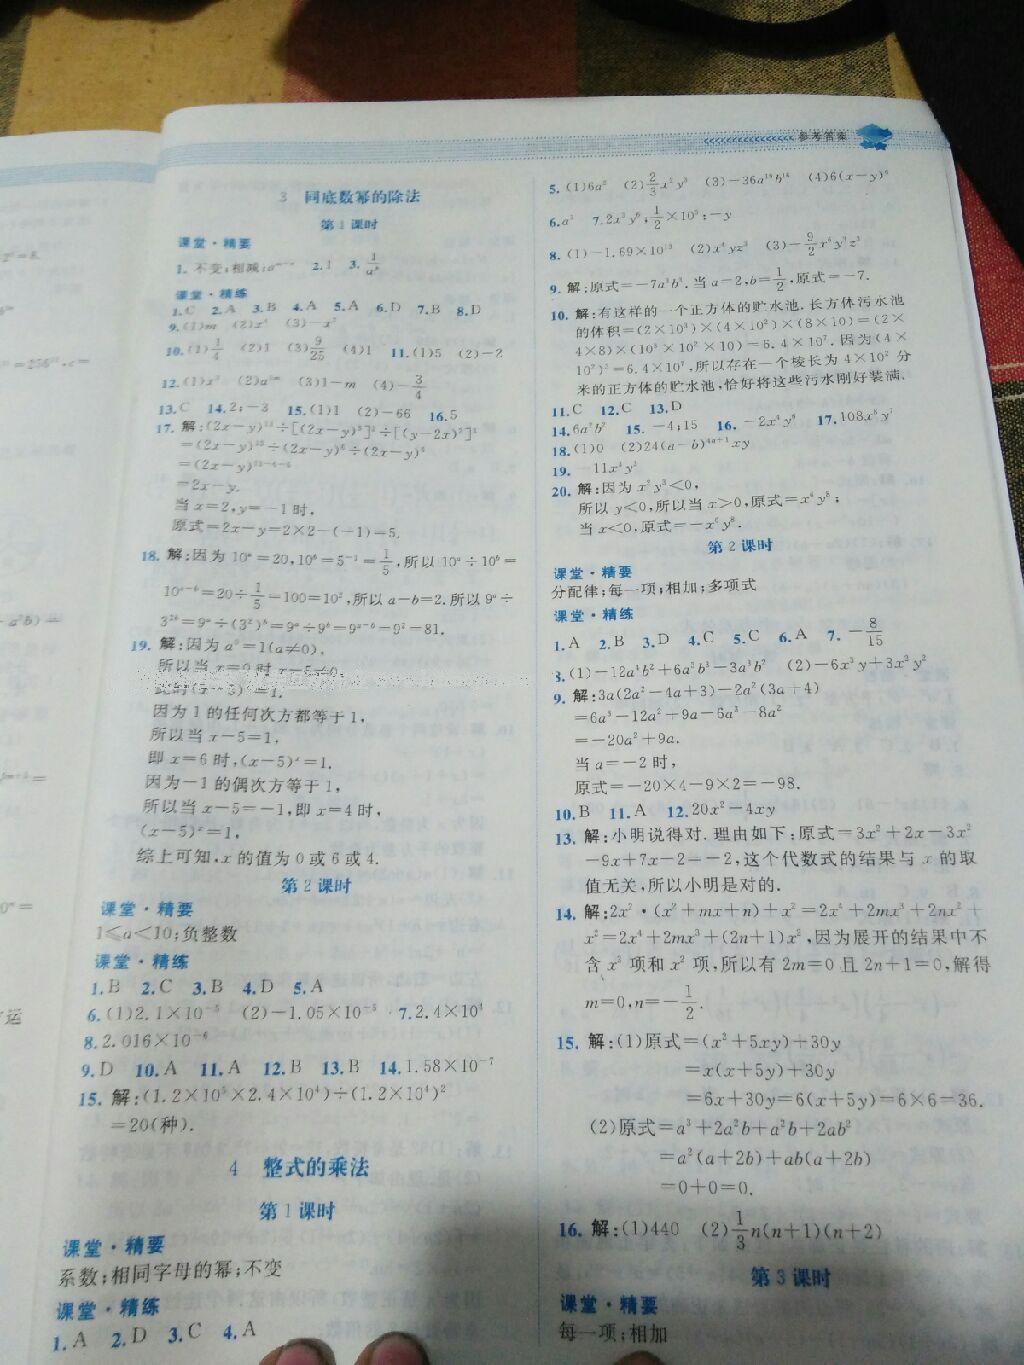 参考答案
3 同底数幂的除法
第1课时
课堂·精要
1. 不变;相减;aᵐ⁻ⁿ 2.1 3.
课堂·精练
1.C 2.A 3.B 4.A 5.A 6.D 7.B 8.D
9.(1)m (2)x⁴ (3)-x²
10.(1)1/4 (2)1 (3)9/25 (4)1 11.(1)5 (2)-2
12. (3)1-m (4)-3/4
13.C 14.2;-3 15.(1)1 (2)-66 16.5
17. 解:
=2x-y.
当x=2,y=-1时,
原式=2x-y=2×2-(-1)=5.
18. 解:因为10ᵃ=20,10ᵇ=5⁻¹=1/5,所以10ᵃ÷10ᵇ=
10ᵃ⁻ᵇ=20÷1/5=100=10²,所以a-b=2.所以9ᵃ÷
3²ᵇ=9ᵃ÷(3²)ᵇ=9ᵃ÷9ᵇ=9ᵃ⁻ᵇ=9²=81.
19. 解:因为a⁰=1(a≠0),
所以当x=0时x-5≠0,
此时(x-5)ˣ=1.
因为1的任何次方都等于1,
所以当x-5=1,
即x=6时,(x-5)ˣ=1.
因为-1的偶次方等于1,
所以当x-5=-1,即x=4时,
(x-5)ˣ=1,
综上可知,x的值为0或6或4.
第2课时
课堂·精要
1≤a<10;负整数
课堂·精练
1.B 2.C 3.B 4.D 5.A
6.(1)2.1×10⁻⁵ (2)-1.05×10⁻⁵ 7.2.4×10⁴
8.2.016×10⁻⁶
9.D 10.A 11.A 12.B 13.B 14.1.58×10⁻⁷
15. 解:(1.2×10⁵×2.4×10⁴)÷(1.2×10⁴)²
=20(种).
4 整式的乘法
第1课时
课堂·精要
系数;相同字母的幂;不变
课堂·精练
1.A 2.D 3.C 4.A
5.
6.
8.
9. 解:原式=-7a³b³.当a=2,b=1/2,原式=-7.
10. 解:有这样的一个正方体的贮水池.长方体污水池
的体积=(2×10³)×(4×10²)×(8×10)=(2×
4×8)×(10³×10²×10)=6.4×10⁷. 因为(4×
10²)³=6.4×10⁷,所以存在一个棱长为4×10²分
米的正方体的贮水池,恰好将这些污水刚好装满.
11.C 12.C 13.D
14. 15.-4;15 16. 17.
18.(1)0 (2)24(a-b)⁴ⁿ⁺¹xy
19.
20. 解:因为x²y³<0,
所以y<0,所以当x>0,原式=x⁶y⁸;
当x<0,原式=-x⁶y⁸.
第2课时
课堂·精要
分配律;每一项;相加;多项式
课堂·精练
1.A 2.B 3.D 4.C 5.C 6.A 7.-8/15
8. (2)-6x³y+3x²y²
9. 解:3a(2a²-4a+3)-2a²(3a+4)
=6a³-12a²+9a-6a³-8a²
=-20a²+9a.
当a=-2时,
原式=-20×4-9×2=-98.
10.B 11.A 12.20x²-4xy
13. 解:小明说得对.理由如下:原式=3x²+2x-3x²
-9x+7x-2=-2,这个代数式的结果与x的取
值无关,所以小明是对的.
14. 解:2x²·(x²+mx+n)+x²=2x⁴+2mx³+2nx²+
x²=2x⁴+2mx³+(2n+1)x²,因为展开的结果中不
含x³项和x²项,所以有2m=0且2n+1=0,解得
m=0,n=-1/2.
15. 解:(1)原式=(x²+5xy)+30y
=x(x+5y)+30y
=6x+30y=6(x+5y)=6×6=36.
(2)原式=a³+2a²b+a²b+2ab²
=a²(a+2b)+ab(a+2b)
=0+0=0.
16. 解:(1)440 (2)1/3n(n+1)(n+2)
第3课时
课堂·精要
每一项;相加